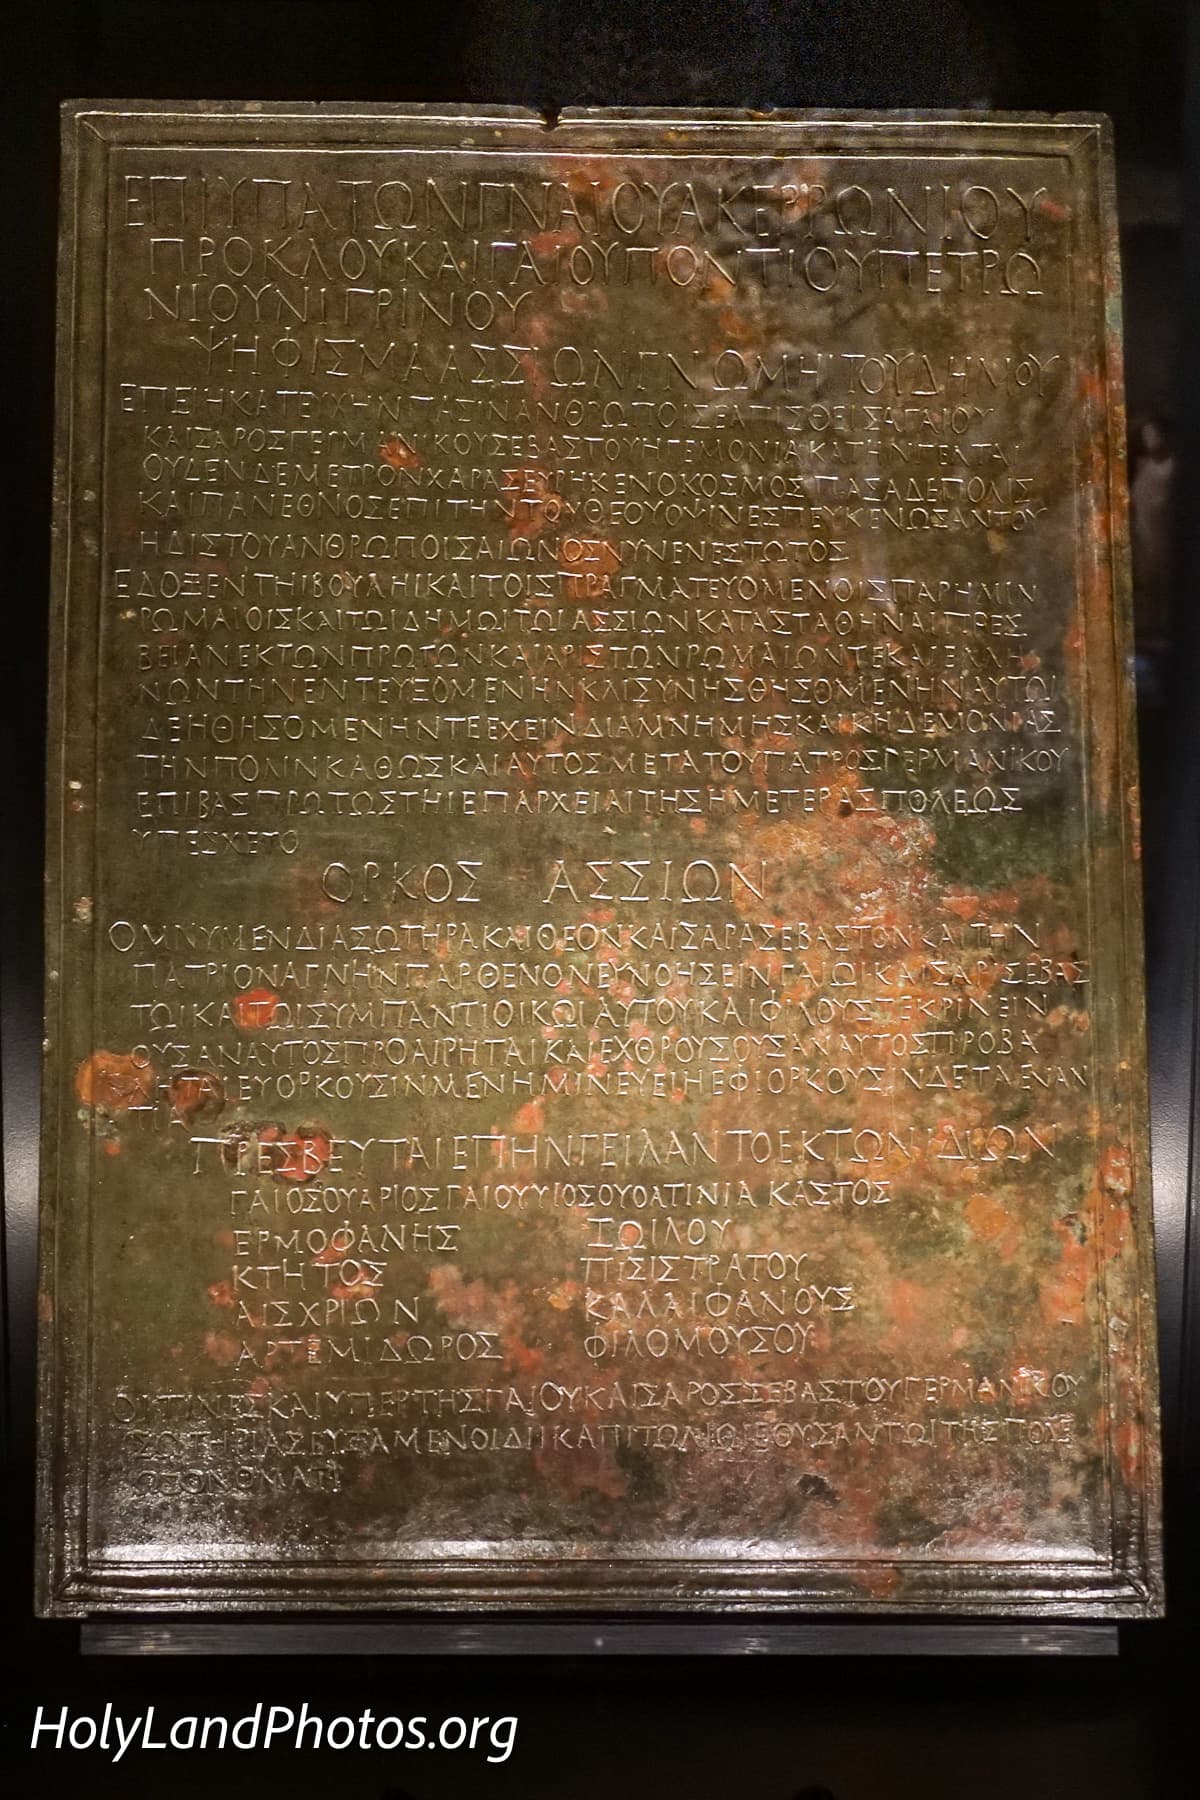 ΕΠΙΥΠΑΤΩΝΓΝΑΙΟΥΑΚΕΡΡΩΝΙΟΥ
ΠΡΟΚΛΟΥΚΑΙΓΑΙΟΥΠΟΝΤΙΟΥΠΕΤΡΩ
ΝΙΟΥΝΙΓΡΙΝΟΥ
ΨΗΦΙΣΜΑΑΣΣΙΩΝΓΝΩΜΗΙΤΟΥΔΗΜΟΥ
ΕΠΕΙΗΚΑΤΕΥΧΗΝΠΑΣΙΝΑΝΘΡΩΠΟΙΣΕΛΠΙΣΘΕΙΣΑΓΑΙΟΥ
ΚΑΙΣΑΡΟΣΓΕΡΜΑΝΙΚΟΥΣΕΒΑΣΤΟΥΗΓΕΜΟΝΙΑΚΑΤΗΝΓΕΛΤΑΙ
ΟΥΔΕΝΔΕΜΕΤΡΟΝΧΑΡΑΣΕΥΡΗΚΕΝΟΚΟΣΜΟΣΠΑΣΑΔΕΠΟΛΙΣ
ΚΑΙΠΑΝΕΘΝΟΣΕΠΙΤΗΝΤΟΥΘΕΟΥΟΨΙΝΕΣΠΕΥΚΕΝΩΣΑΝΤΟΥ
ΗΔΙΣΤΟΥΑΝΘΡΩΠΟΙΣΑΙΩΝΟΣΝΥΝΕΝΕΣΤΩΤΟΣ
ΕΔΟΞΕΝΤΗΙΒΟΥΛΗΙΚΑΙΤΟΙΣΠΡΑΓΜΑΤΕΥΟΜΕΝΟΙΣΠΑΡΗΜΙΝ
ΡΩΜΑΙΟΙΣΚΑΙΤΩΙΔΗΜΩΙΤΩΙΑΣΣΙΩΝΚΑΤΑΣΤΑΘΗΝΑΙΠΡΕΣ
ΒΕΙΑΝΕΚΤΩΝΠΡΩΤΩΝΚΑΙΑΡΙΣΤΩΝΡΩΜΑΙΩΝΤΕΚΑΙΕΛΛΗ
ΝΩΝΤΗΝΕΝΤΕΥΞΟΜΕΝΗΝΚΑΙΣΥΝΗΣΘΗΣΟΜΕΝΗΝΑΥΤΩΙ
ΔΕΗΘΗΣΟΜΕΝΗΝΤΕΕΧΕΙΝΔΙΑΜΝΗΜΗΣΚΑΙΚΗΔΕΜΟΝΙΑΣ
ΤΗΝΠΟΛΙΝΚΑΘΩΣΚΑΙΑΥΤΟΣΜΕΤΑΤΟΥΠΑΤΡΟΣΓΕΡΜΑΝΙΚΟΥ
ΕΠΙΒΑΣΠΡΩΤΩΣΤΗΙΕΠΑΡΧΕΙΑΙΤΗΣΗΜΕΤΕΡΑΣΠΟΛΕΩΣ
ΥΠΕΣΧΕΤΟ
ΟΡΚΟΣ ΑΣΣΙΩΝ
ΟΜΝΥΜΕΝΔΙΑΣΩΤΗΡΑΚΑΙΘΕΟΝΚΑΙΣΑΡΑΣΕΒΑΣΤΟΝΚΑΙΤΗΝ
ΠΑΤΡΙΟΝΑΓΝΗΝΠΑΡΘΕΝΟΝΕΥΝΟΗΣΕΙΝΓΑΙΩΙΚΑΙΣΑΡΙΣΕΒΑΣ
ΤΩΙΚΑΙΤΩΙΣΥΜΠΑΝΤΙΟΙΚΩΙΑΥΤΟΥΚΑΙΦΙΛΟΥΣΤΕΚΡΙΝΕΙΝ
ΟΥΣΑΝΑΥΤΟΣΠΡΟΑΙΡΗΤΑΙΚΑΙΕΧΘΡΟΥΣΟΥΣΑΝΑΥΤΟΣΠΡΟΒΑ
ΛΗΤΑΙΕΥΟΡΚΟΥΣΙΝΜΕΝΗΜΙΝΕΥΕΙΗΕΦΙΟΡΚΟΥΣΙΝΔΕΤΑΕΝΑΝ
ΤΙΑ
ΠΡΕΣΒΕΥΤΑΙΕΠΗΝΓΕΙΛΑΝΤΟΕΚΤΩΝΙΔΙΩΝ
ΓΑΙΟΣΟΥΑΡΙΟΣΓΑΙΟΥΥΙΟΣΟΥΟΛΤΙΝΙΑΚΑΣΤΟΣ
ΕΡΜΟΦΑΝΗΣ ΖΩΙΛΟΥ
ΚΤΗΤΟΣ ΠΙΣΙΣΤΡΑΤΟΥ
ΑΙΣΧΡΙΩΝ ΚΑΛΛΙΦΑΝΟΥΣ
ΑΡΤΕΜΙΔΩΡΟΣ ΦΙΛΟΜΟΥΣΟΥ
ΟΙΤΙΝΕΣΚΑΙΥΠΕΡΤΗΣΓΑΙΟΥΚΑΙΣΑΡΟΣΣΕΒΑΣΤΟΥΓΕΡΜΑΝΙΚΟΥ
ΣΩΤΗΡΙΑΣΕΥΞΑΜΕΝΟΙΔΙΙΚΑΠΙΤΩΛΙΩΙΕΘΥΣΑΝΤΩΙΤΗΣΠΟΛΕ
ΩΣΟΝΟΜΑΤΙ
HolyLandPhotos.org